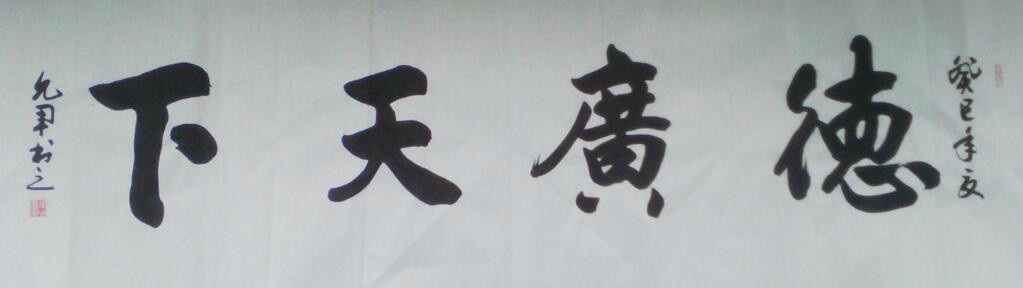 癸巳年夏
德廣天下
允軍书之